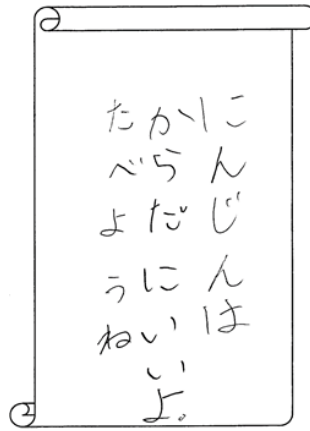 にんじんは
からだにいいよ。
たべようね